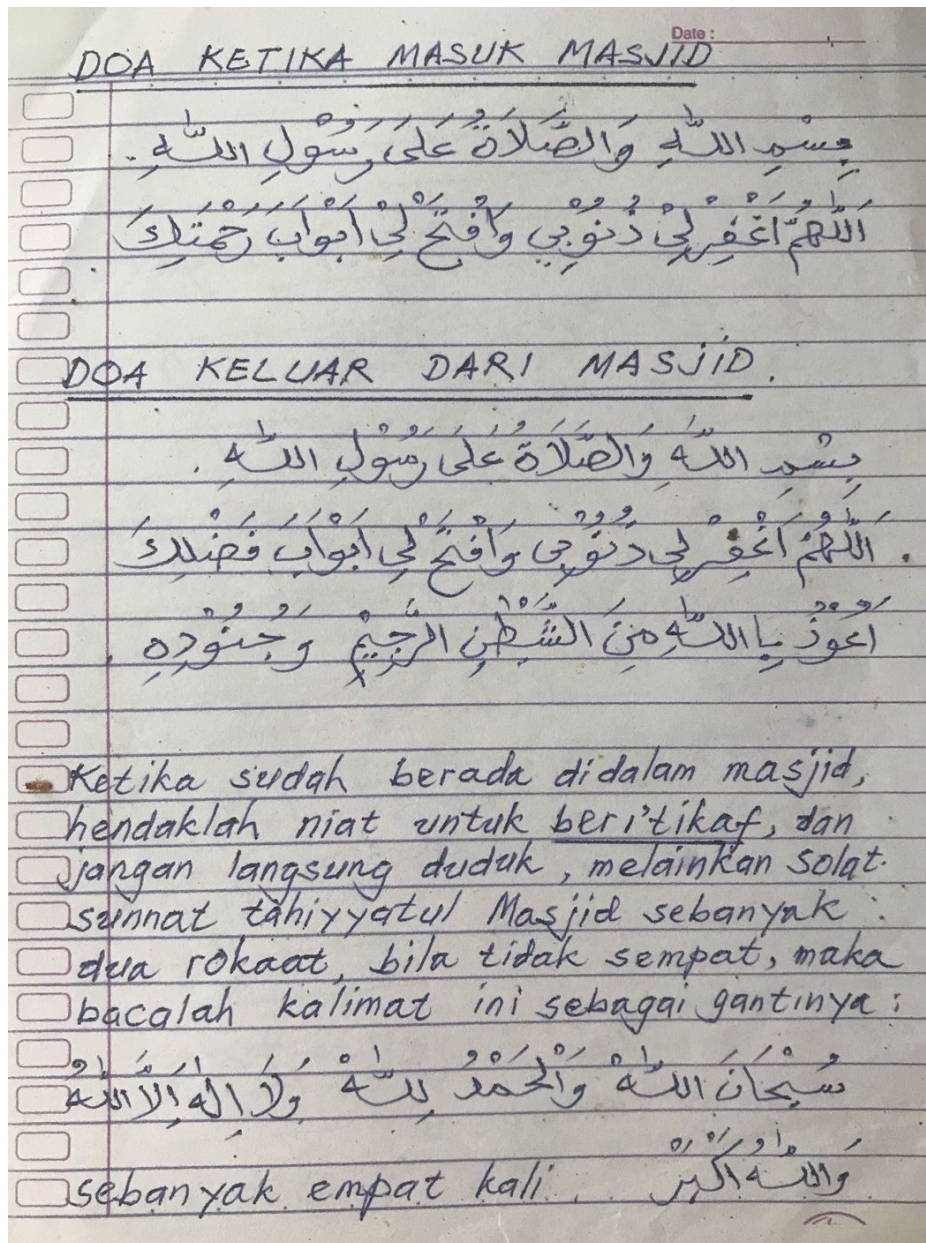 Date :
DOA KETIKA MASUK MASJID
بِسْمِ اللّٰهِ وَالصَّلَاةُ عَلَى رَسُوْلِ اللّٰهِ .
اَللّٰهُمَّ اغْفِرْ لِيْ ذُنُوْبِي وَافْتَحْ لِيْ اَبْوَابَ رَحْمَتِكَ
DOA KELUAR DARI MASJID .
بِسْمِ اللّٰهِ وَالصَّلَاةُ عَلَى رَسُوْلِ اللّٰهِ .
اَللّٰهُمَّ اغْفِرْ لِي ذُنُوْبِي وَافْتَحْ لِي اَبْوَابَ فَضْلِكَ
اَعُوْذُ بِااللّٰهِ مِنَ الشَّيْطٰنِ الرَّجِيْمِ وَجُنُوْدِهِ .
Ketika sudah berada didalam masjid,
hendaklah niat untuk beri'tikaf, dan
jangan langsung duduk, melainkan solat
sunnat tahiyyatul Masjid sebanyak
dua rokaat, bila tidak sempat, maka
bacalah kalimat ini sebagai gantinya :
سُبْحَانَ اللّٰهْ وَالْحَمْدُ لِلّٰهْ وَلَا اِلٰهَ اِلَّا اللّٰهُ
وَاللّٰهُ اَكْبَرْ
sebanyak empat kali .